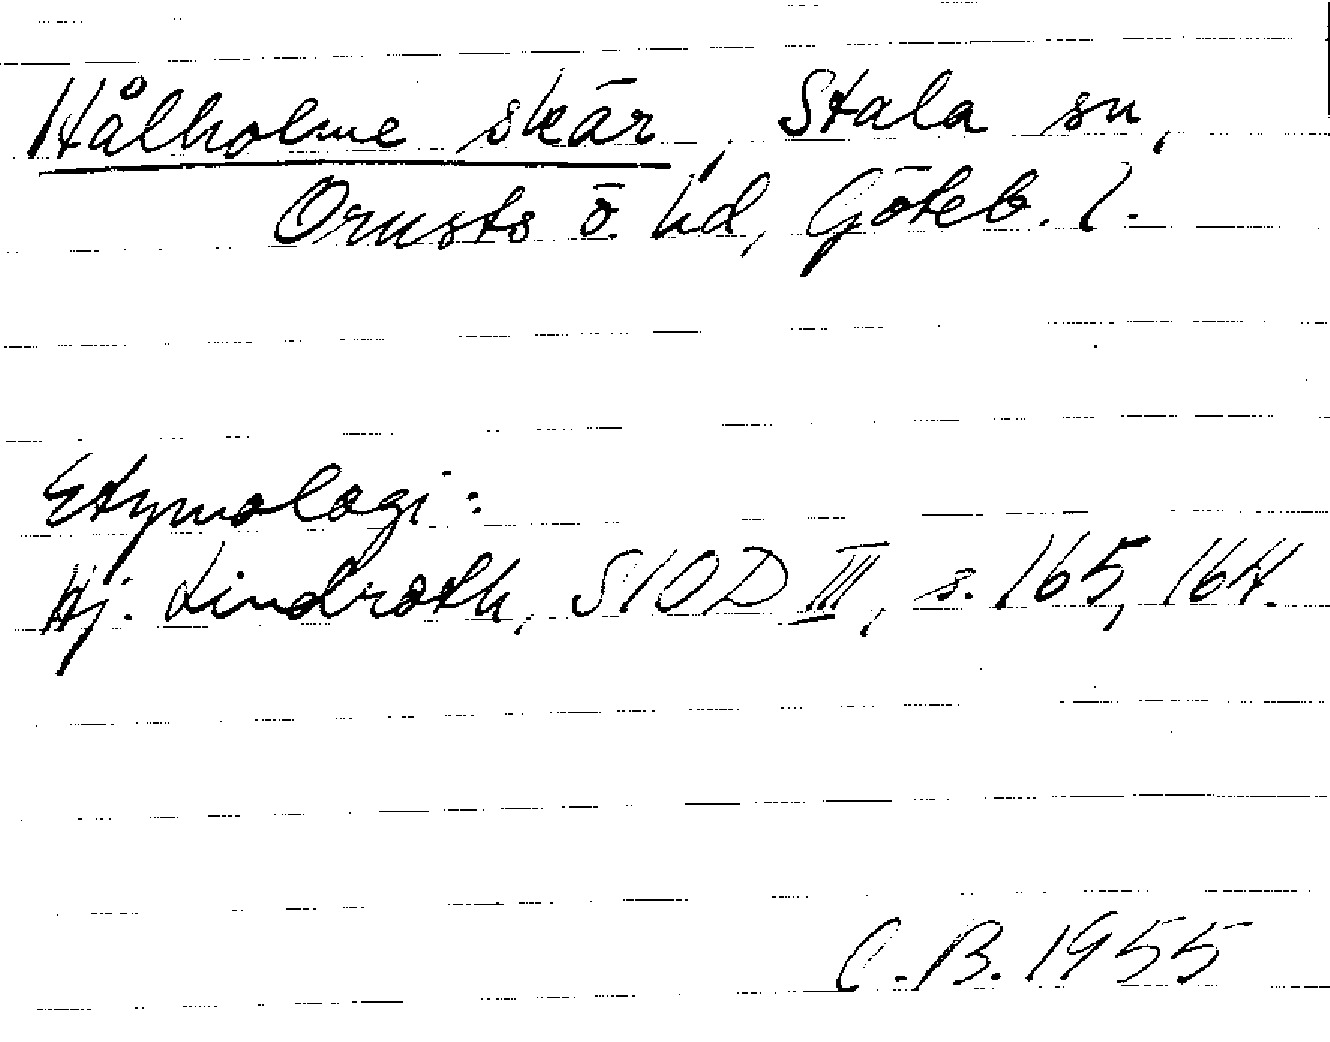 Hålholme skär, Stala sn,
Orusts ö. hd, Göteb. l.
Etymologi:
Hj. Lindroth, SIOD III, s. 165, 164.
C.B. 1955